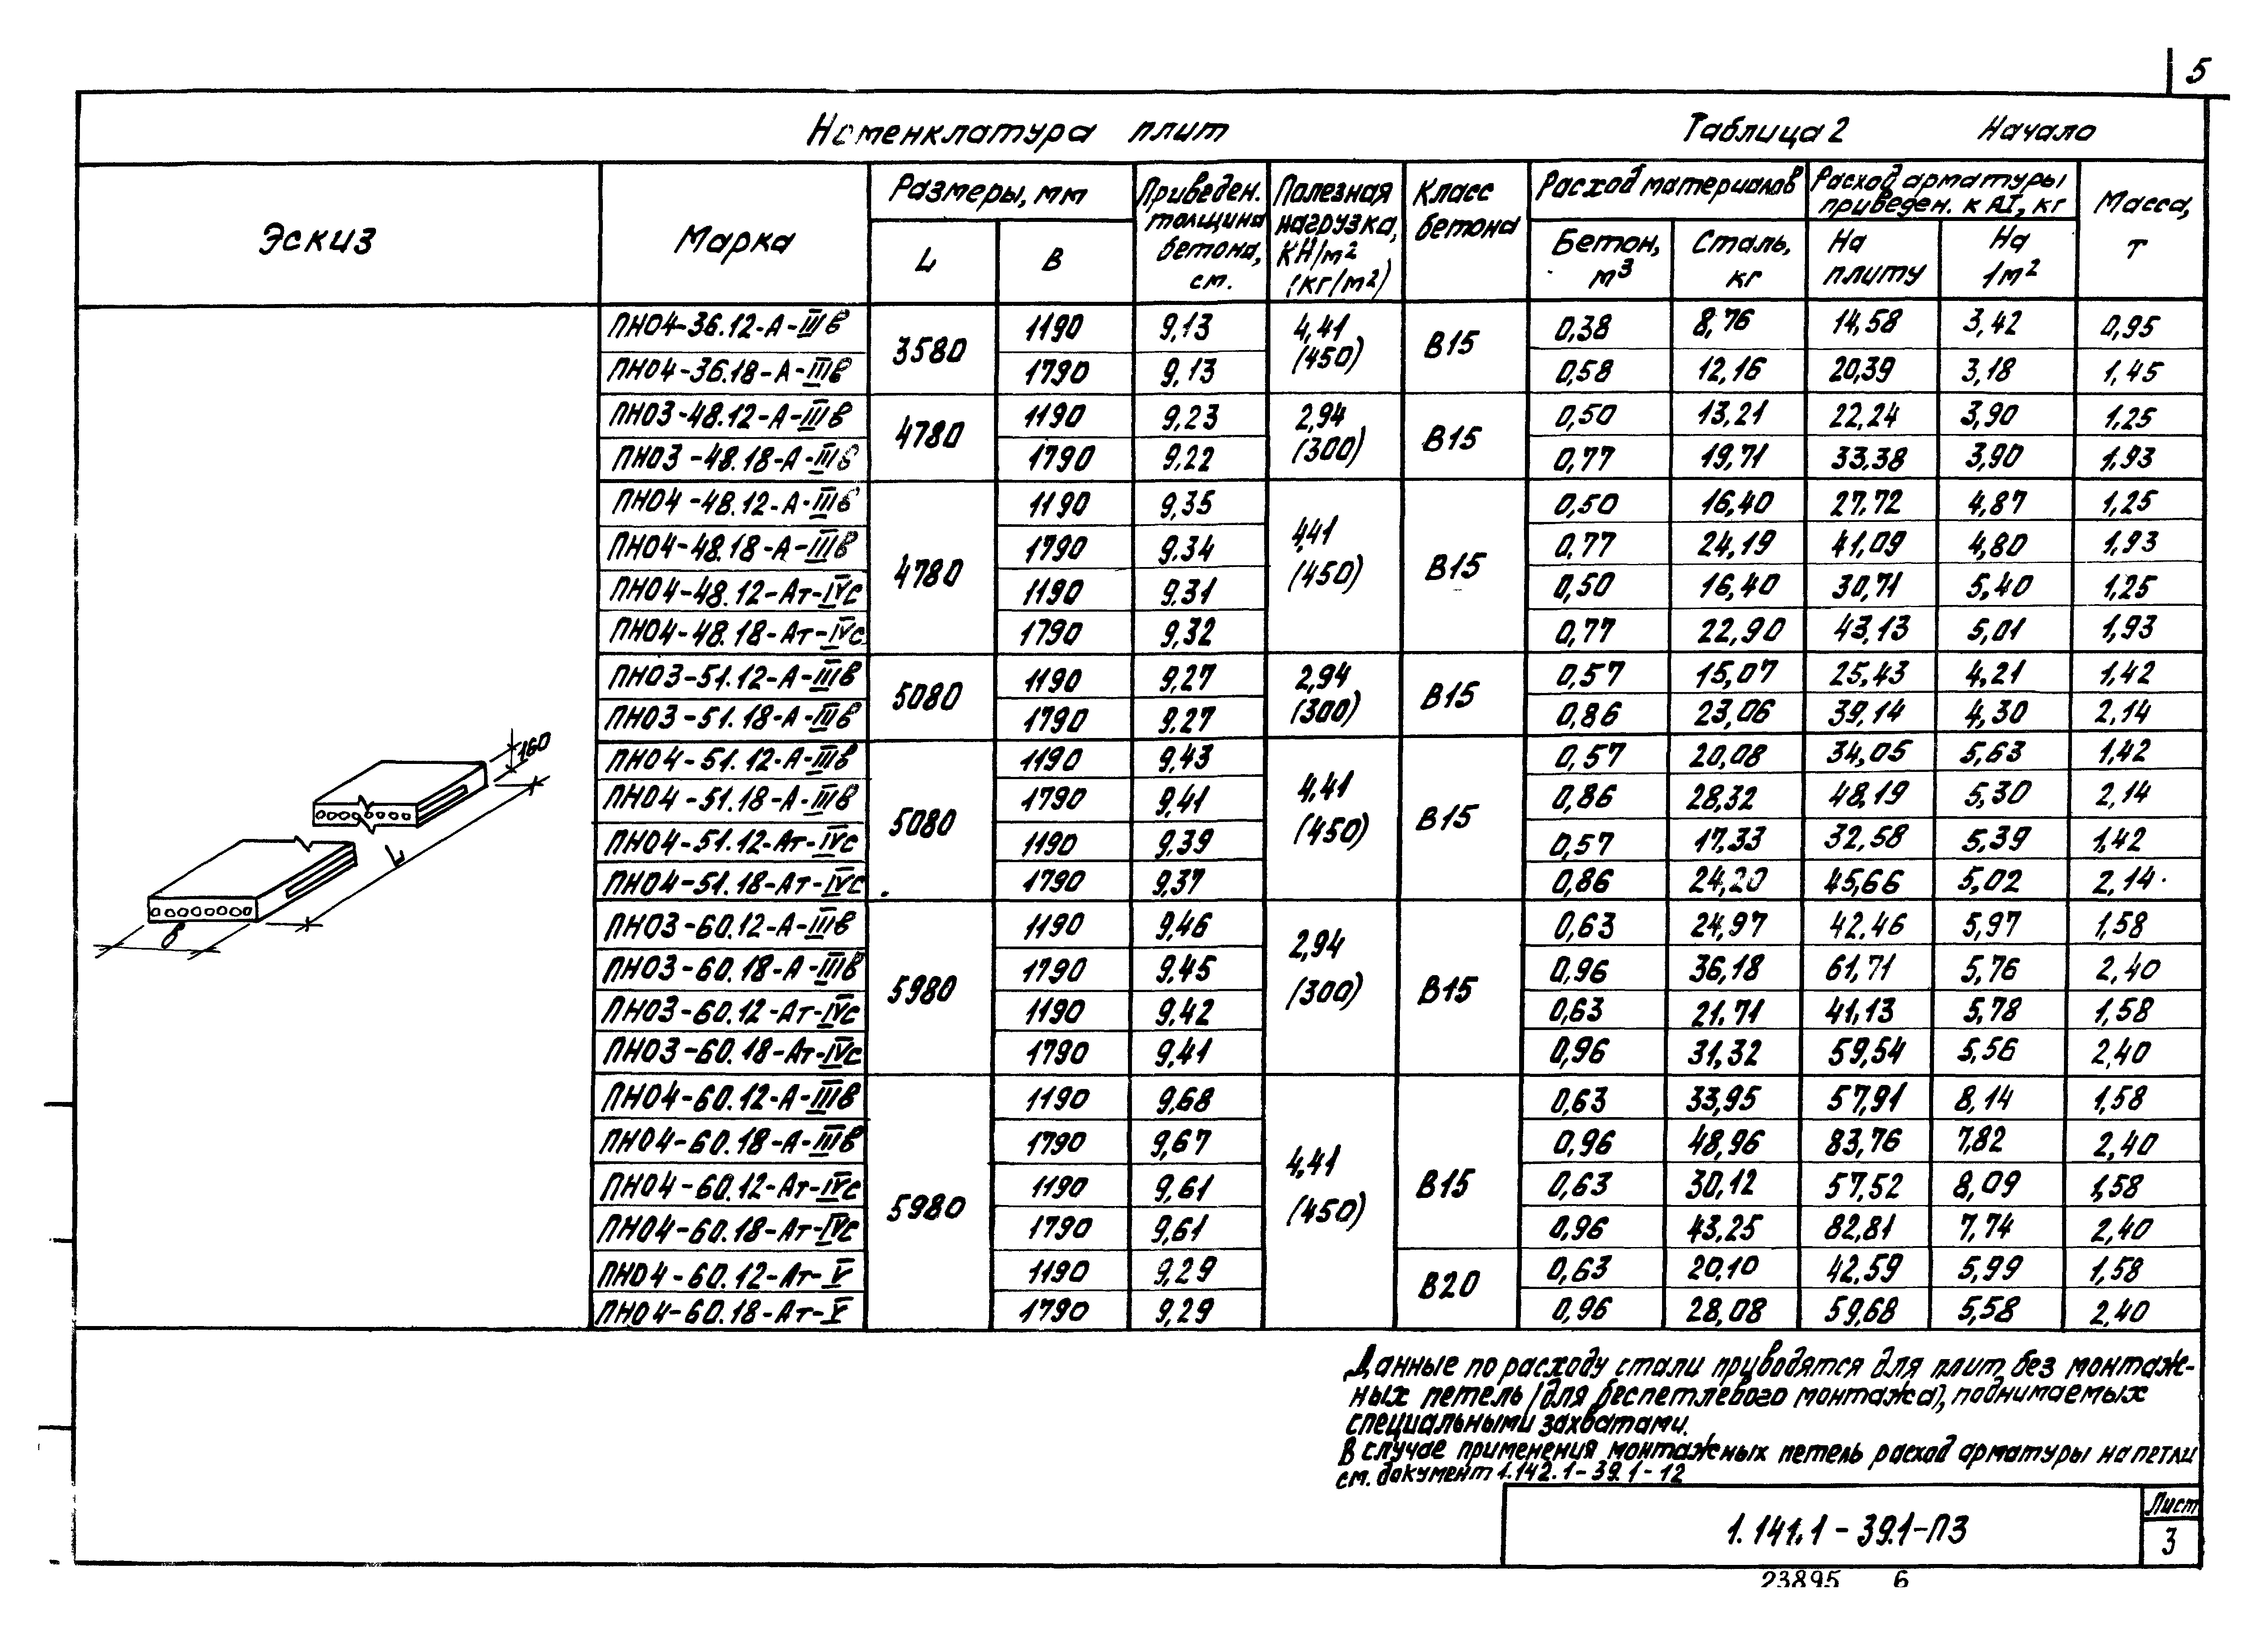 5
Номенклатура плит Таблица 2 Начало
Эскиз Марка Размеры, мм L B Приведен. толщина бетона, см. Полезная нагрузка, КН/м² (кг/м²) Класс бетона Расход материалов Бетон, м³ Сталь, кг Расход арматуры приведен. к АI, кг На плиту На 1м² Масса, т
ПНО4-36.12-А-IIIв 3580 1190 9,13 4,41 (450) В15 0,38 8,76 14,58 3,42 0,95
ПНО4-36.18-А-IIIв 1790 9,13 0,58 12,16 20,39 3,18 1,45
ПНО3-48.12-А-IIIв 4780 1190 9,23 2,94 (300) В15 0,50 13,21 22,24 3,90 1,25
ПНО3-48.18-А-IIIв 1790 9,22 0,77 19,71 33,38 3,90 1,93
ПНО4-48.12-А-IIIв 4780 1190 9,35 4,41 (450) В15 0,50 16,40 27,72 4,87 1,25
ПНО4-48.18-А-IIIв 1790 9,34 0,77 24,19 41,09 4,80 1,93
ПНО4-48.12-Ат-IVс 1190 9,31 0,50 16,40 30,71 5,40 1,25
ПНО4-48.18-Ат-IVс 1790 9,32 0,77 22,90 43,13 5,01 1,93
ПНО3-51.12-А-IIIв 5080 1190 9,27 2,94 (300) В15 0,57 15,07 25,43 4,21 1,42
ПНО3-51.18-А-IIIв 1790 9,27 0,86 23,06 39,14 4,30 2,14
ПНО4-51.12-А-IIIв 5080 1190 9,43 4,41 (450) В15 0,57 20,08 34,05 5,63 1,42
ПНО4-51.18-А-IIIв 1790 9,41 0,86 28,32 48,19 5,30 2,14
ПНО4-51.12-Ат-IVс 1190 9,39 0,57 17,33 32,58 5,39 1,42
ПНО4-51.18-Ат-IVс 1790 9,37 0,86 24,20 45,66 5,02 2,14
ПНО3-60.12-А-IIIв 5980 1190 9,46 2,94 (300) В15 0,63 24,97 42,46 5,97 1,58
ПНО3-60.18-А-IIIв 1790 9,45 0,96 36,18 61,71 5,76 2,40
ПНО3-60.12-Ат-IVс 1190 9,42 0,63 21,71 41,13 5,78 1,58
ПНО3-60.18-Ат-IVс 1790 9,41 0,96 31,32 59,54 5,56 2,40
ПНО4-60.12-А-IIIв 5980 1190 9,68 4,41 (450) В15 0,63 33,95 57,91 8,14 1,58
ПНО4-60.18-А-IIIв 1790 9,67 0,96 48,96 83,76 7,82 2,40
ПНО4-60.12-Ат-IVс 1190 9,61 0,63 30,12 57,52 8,09 1,58
ПНО4-60.18-Ат-IVс 1790 9,61 0,96 43,25 82,81 7,74 2,40
ПНО4-60.12-Ат-V 1190 9,29 В20 0,63 20,10 42,59 5,99 1,58
ПНО4-60.18-Ат-V 1790 9,29 0,96 28,08 59,68 5,58 2,40
160
L
в
Данные по расходу стали приводятся для плит без монтаж-
ных петель (для беспетлевого монтажа), поднимаемых
специальными захватами.
В случае применения монтажных петель расход арматуры на петли
см. документ 1.142.1-39.1-12
1.141.1-39.1-ПЗ
Лист
3
23895 6